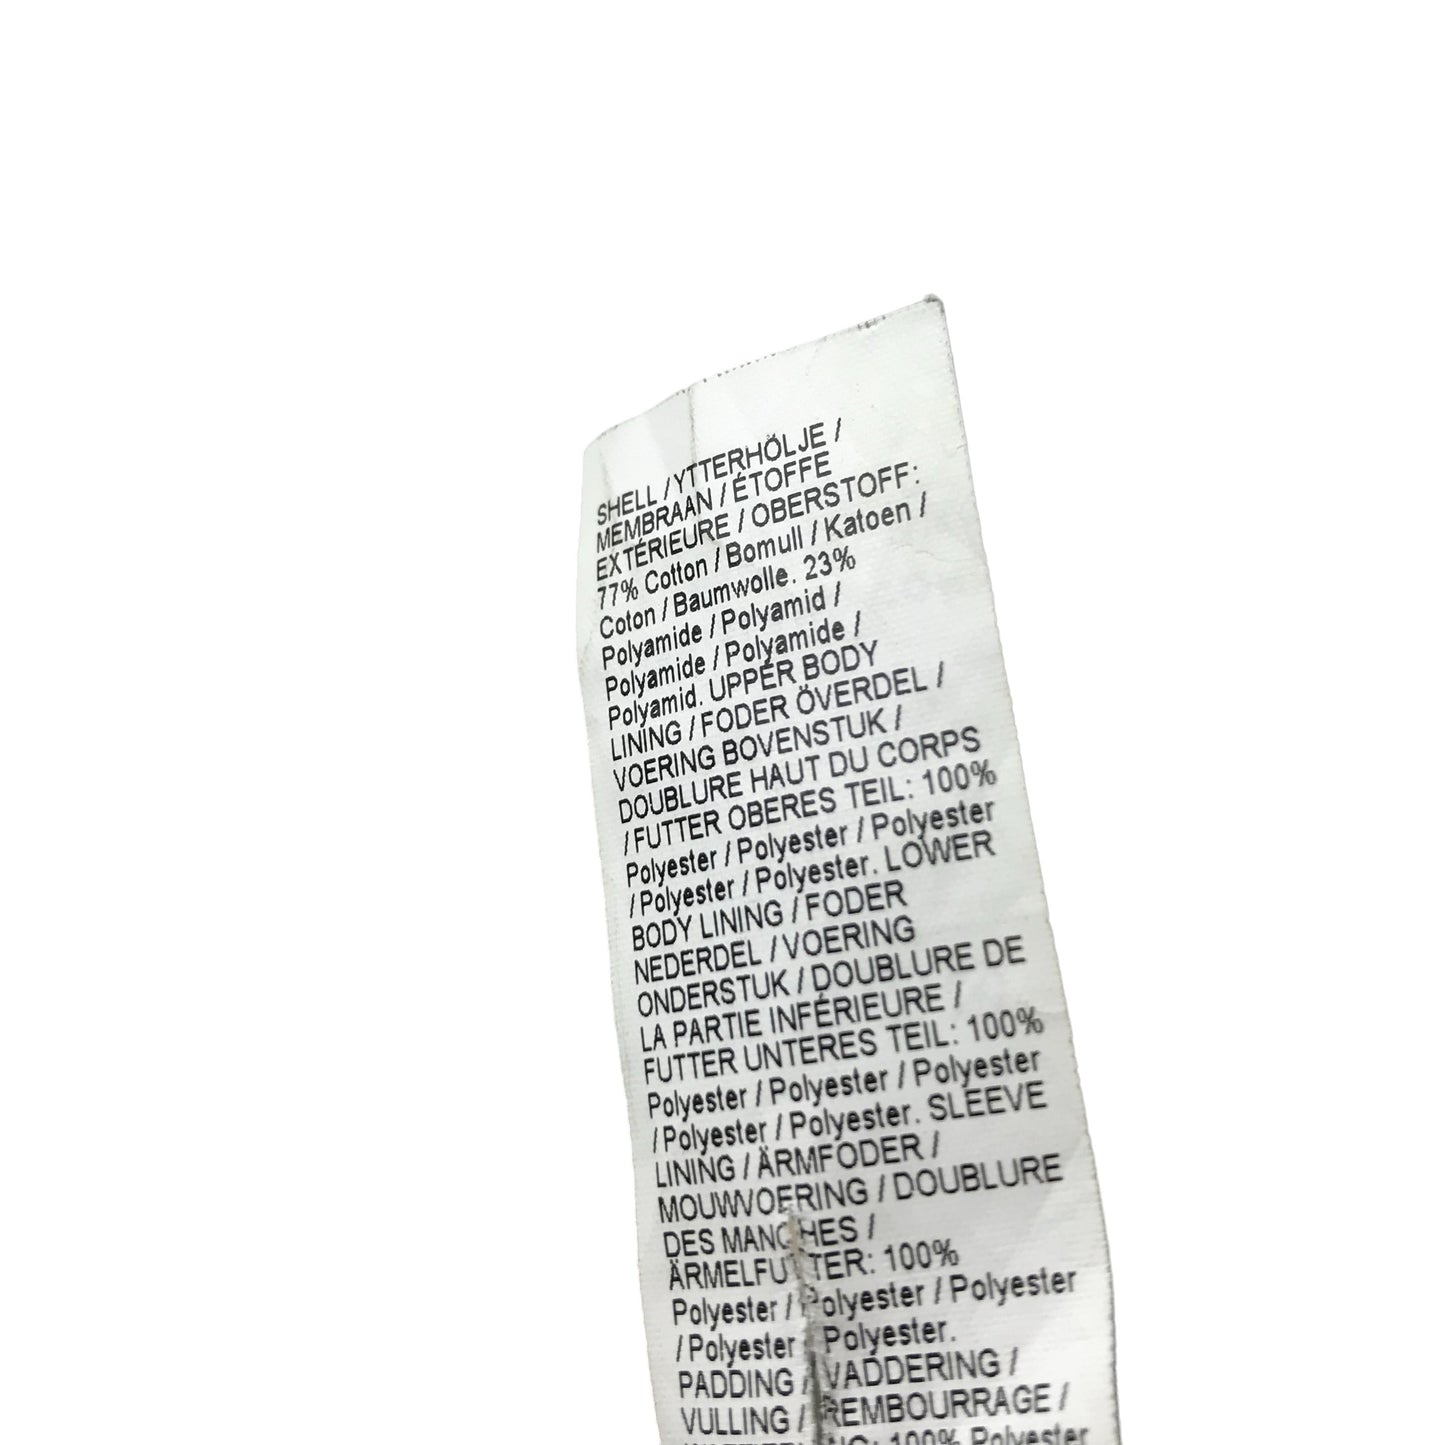 SHELL / YTTERHÖLJE /
MEMBRAAN / ÉTOFFE
EXTÉRIEURE / OBERSTOFF:
77% Cotton / Bomull / Katoen /
Coton / Baumwolle. 23%
Polyamide / Polyamid /
Polyamide / Polyamide /
Polyamid. UPPER BODY
LINING / FODER ÖVERDEL /
VOERING BOVENSTUK /
DOUBLURE HAUT DU CORPS
/ FUTTER OBERES TEIL: 100%
Polyester / Polyester / Polyester
/ Polyester / Polyester. LOWER
BODY LINING / FODER
NEDERDEL / VOERING
ONDERSTUK / DOUBLURE DE
LA PARTIE INFÉRIEURE /
FUTTER UNTERES TEIL: 100%
Polyester / Polyester / Polyester
/ Polyester / Polyester. SLEEVE
LINING / ÄRMFODER /
MOUWVOERING / DOUBLURE
DES MANCHES /
ÄRMELFUTTER: 100%
Polyester / Polyester / Polyester
/ Polyester Polyester.
PADDING / VADDERING /
VULLING / REMBOURRAGE /
100% Polyester